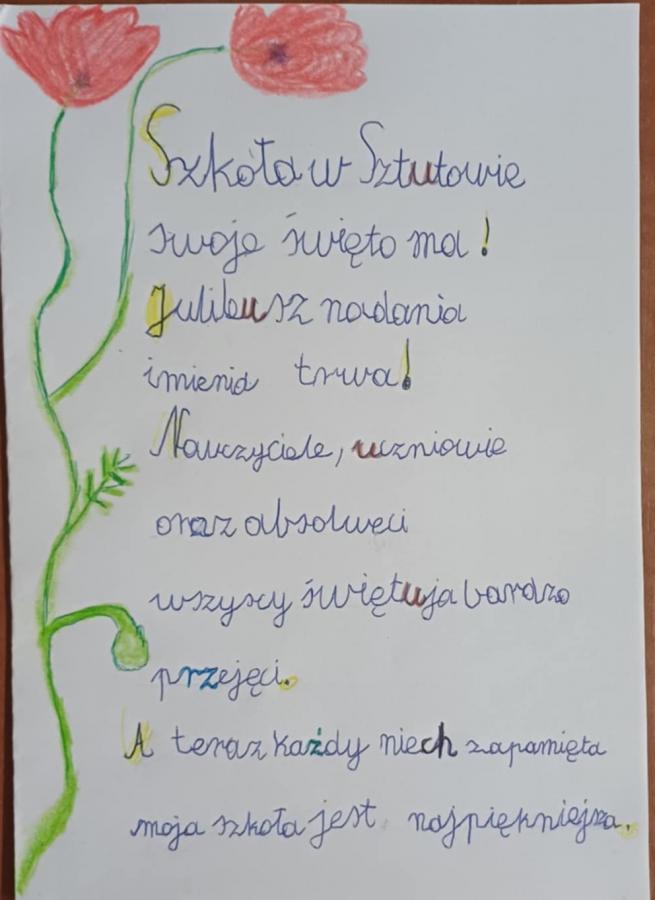 Szkoła w Sztutowie
swoje święto ma!
Julibusz nadania
imienia trwa!
Nauczyciele, uczniowie
oraz absolwęci
wszyscy świętuja bardzo
przejęci.
A teraz każdy niech zapamięta
moja szkoła jest najpiękniejsza.